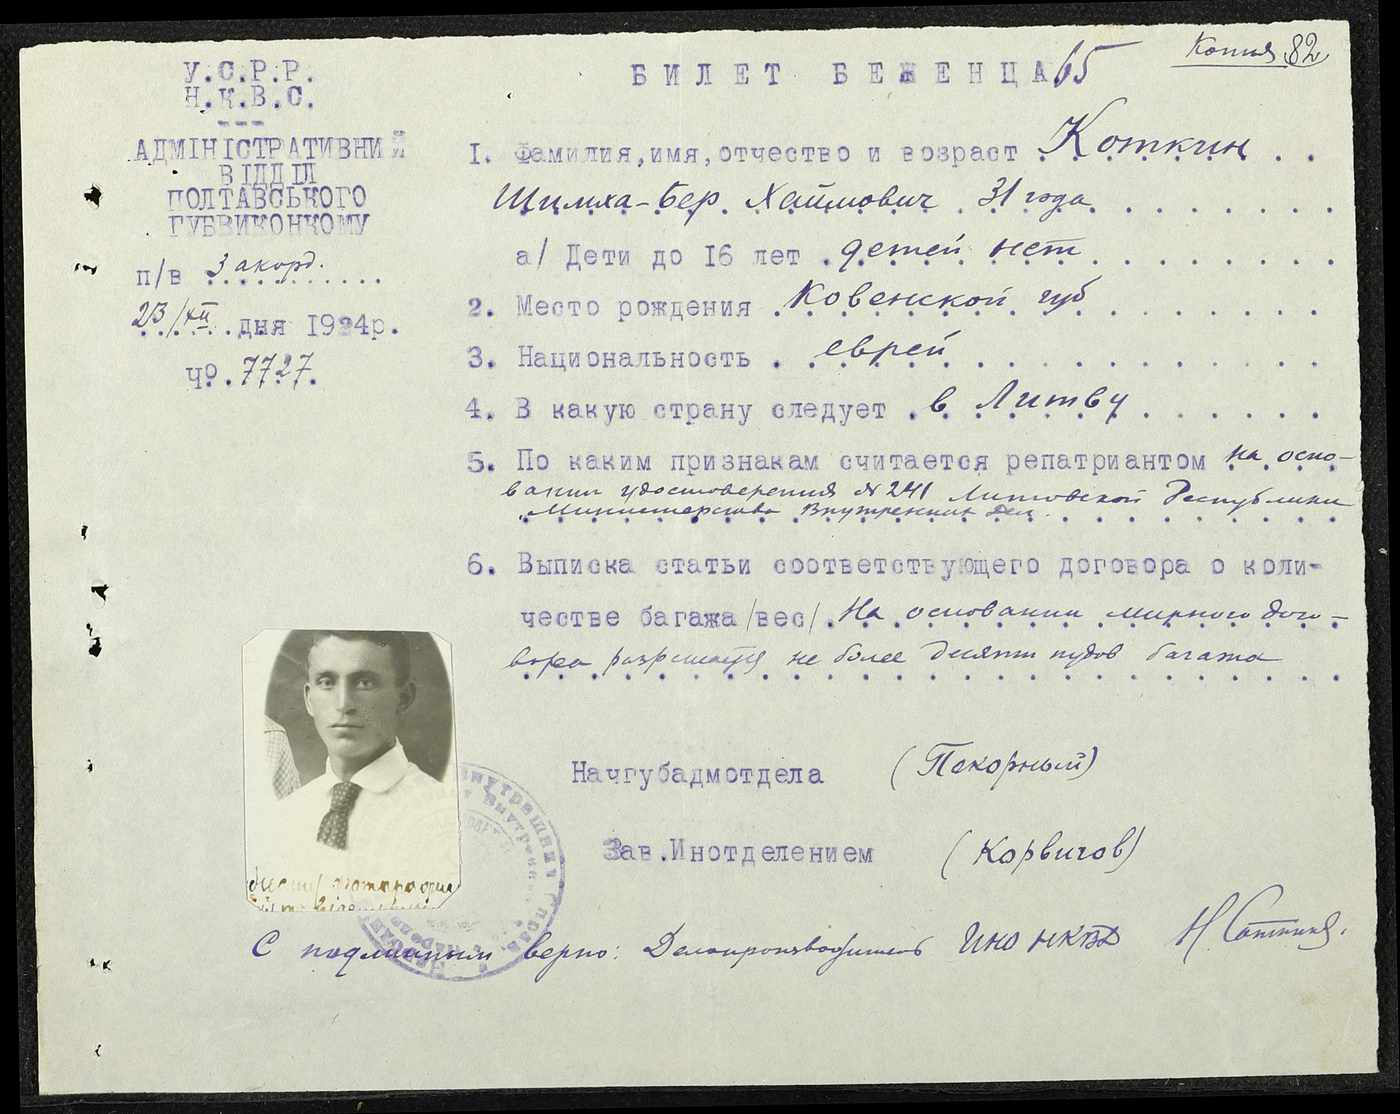 Копия 82
У.С.Р.Р.
Н.К.В.С.
БИЛЕТ БЕЖЕНЦА 65
АДМІНІСТРАТИВНИЙ
ВІДДІЛ
ПОЛТАВСЬКОГО
ГУБВИКОНКОМУ
п/в Закорд.
23/XII дня 1924р.
Чо. 7727.
1. Фамилия, имя, отчество и возраст Коткин
Шимха-Бер Хаймович 31 года
а/ Дети до 16 лет детей нет
2. Место рождения Ковенской губ
3. Национальность еврей
4. В какую страну следует в Литву
5. По каким признакам считается репатриантом на осно-
вании удостоверения № 241 Литовской Республики
Министерства Внутренних Дел.
6. Выписка статьи соответствующего договора о коли-
честве багажа /вес/ На основании мирного дого-
вора разрешается не более десяти пудов багажа
Начгубадмотдела (Покорный)
Зав.Инотделением (Корвигов)
С подлинным верно: Делопроизводитель ИНО НКВД